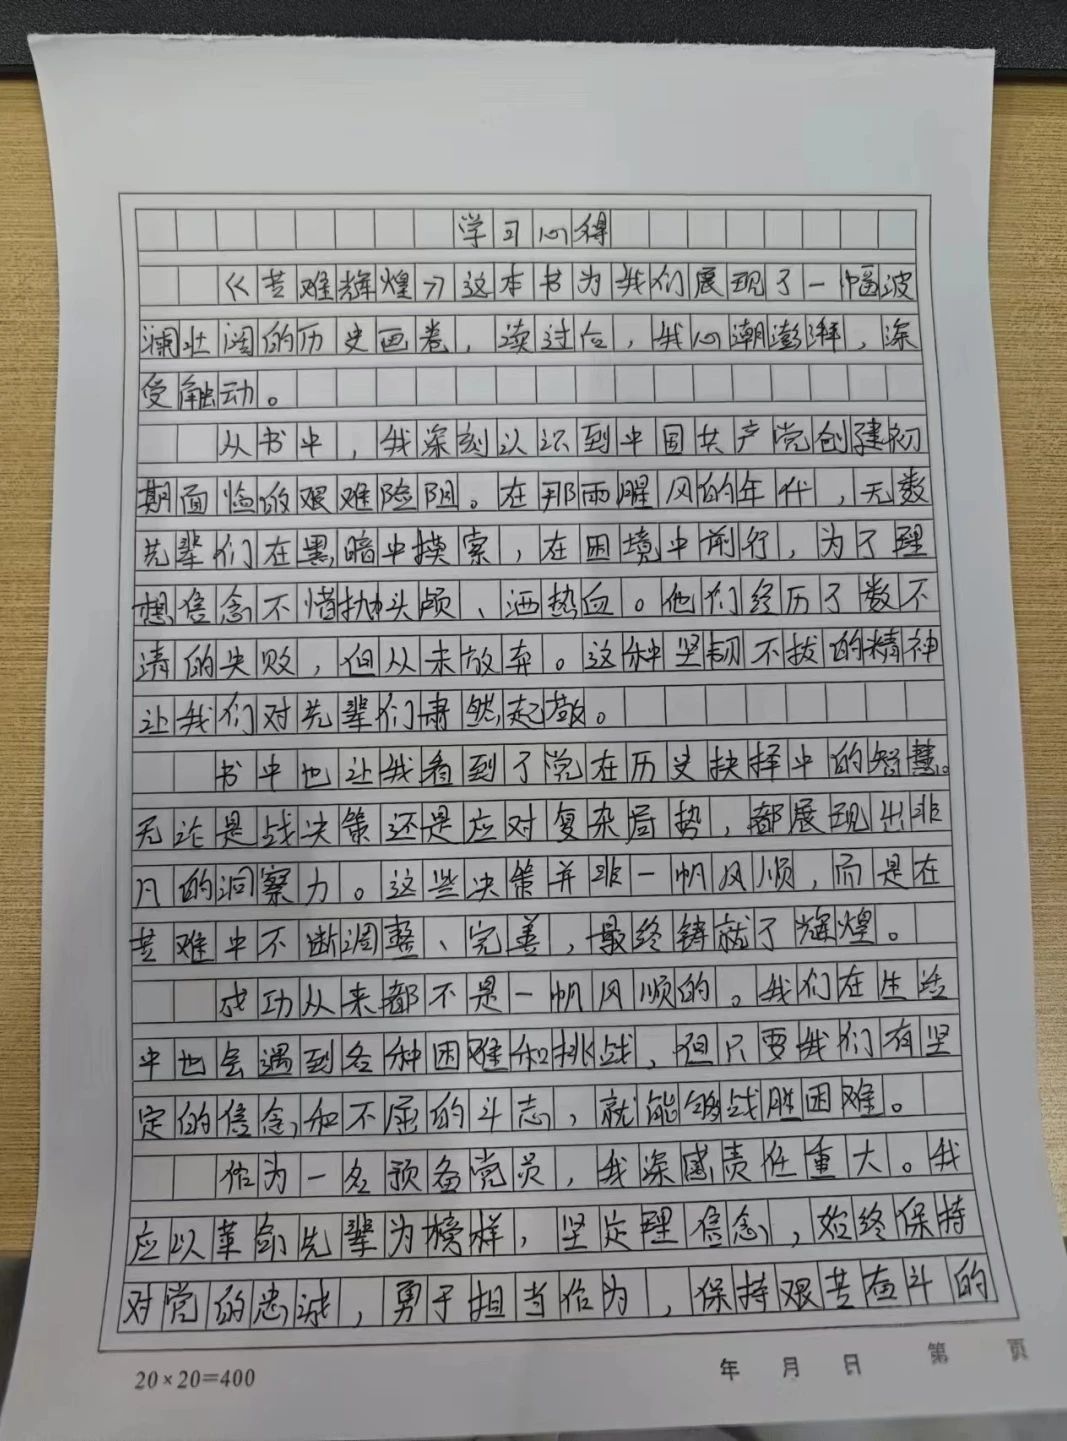 学习心得
《苦难辉煌》这本书为我们展现了一幅波
澜壮阔的历史画卷，读过后，我心潮澎湃，深
受触动。
从书中，我深刻认识到中国共产党创建初
期面临的艰难险阻。在那雨腥风的年代，无数
先辈们在黑暗中摸索，在困境中前行，为了理
想信念不惜抛头颅、洒热血。他们经历了数不
清的失败，但从未放弃。这种坚韧不拔的精神
让我们对先辈们肃然起敬。
书中也让我看到了党在历史抉择中的智慧。
无论是战决策还是应对复杂局势，都展现出非
凡的洞察力。这些决策并非一帆风顺，而是在
苦难中不断调整、完善，最终铸就了辉煌。
成功从来都不是一帆风顺的。我们在生活
中也会遇到各种困难和挑战，但只要我们有坚
定的信念和不屈的斗志，就能够战胜困难。
作为一名预备党员，我深感责任重大。我
应以革命先辈为榜样，坚定理信念，始终保持
对党的忠诚，勇于担当作为，保持艰苦奋斗的
20×20=400
年 月 日 第 页